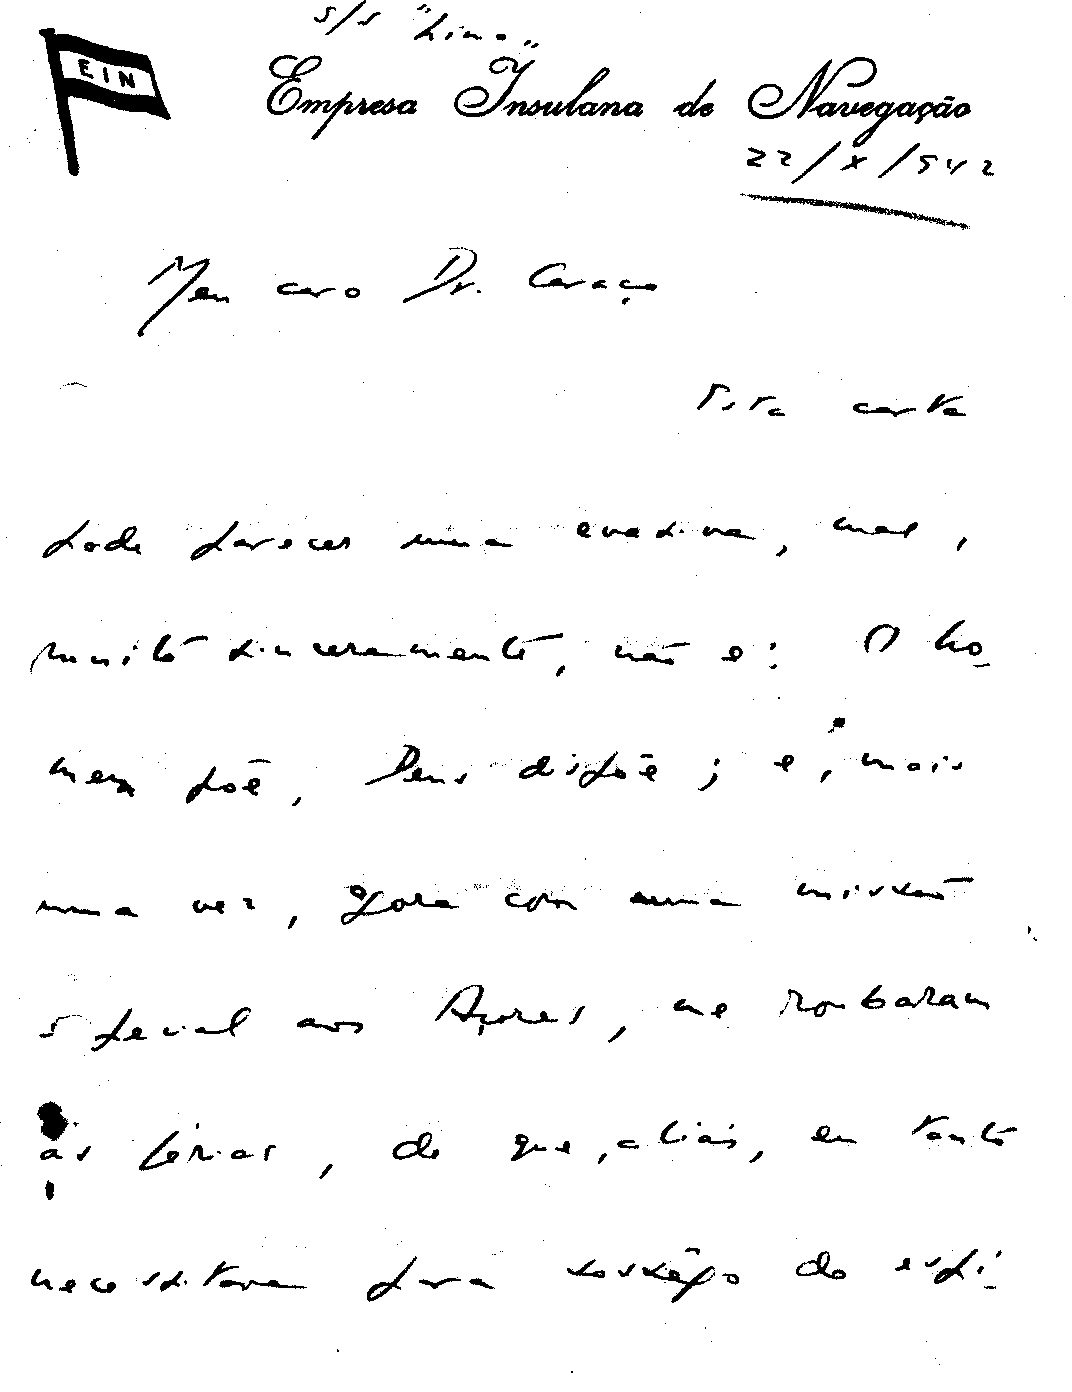 s/s "Lima"
EIN
Empresa Insulana de Navegação
22/X/942
Meu caro Dr. Caraço
Esta carta
pode parecer uma evasiva, mas,
muito sinceramente, não é: O ho-
mem põe, Deus dispõe; e, mais
uma vez, fora com uma missão
special aos Açores, me roubaram
as férias, de que, aliás, eu tanto
necessitava para sossêgo do espí-